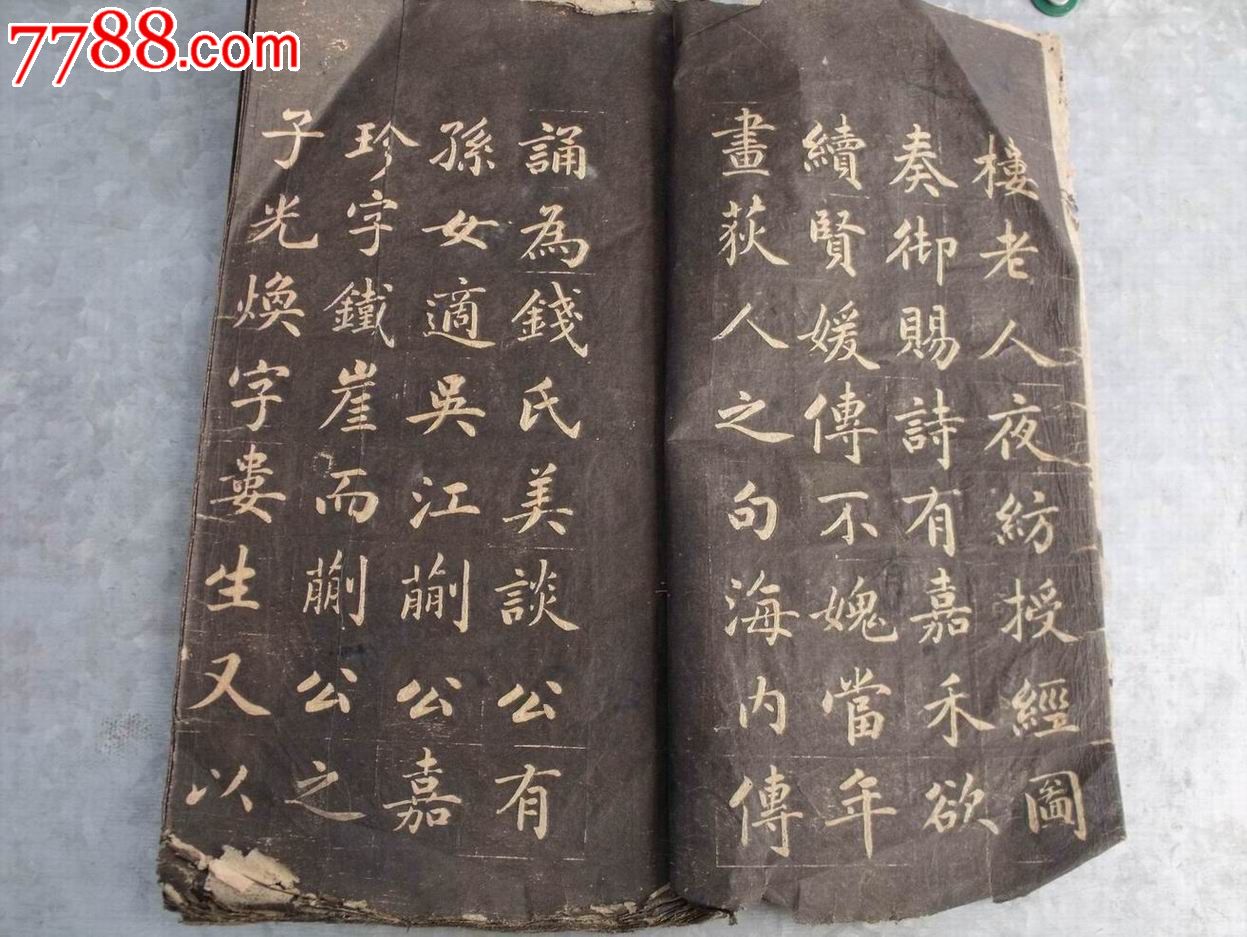 7788.com
樓老人夜紡授經圖
奏御賜詩有嘉禾欲
續賢媛傳不媿當年
畫荻人之句海內傳
誦為錢氏美談公有
孫女適吳江蒯公嘉
珍字鐵崖而蒯公之
子光煥字婁生又以